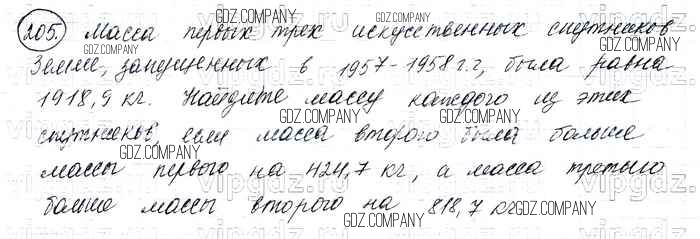 205. Масса первых трех искусственных спутников
Земли, запущенных в 1957-1958 г.г, была равна
1918,9 кг. Найдите массу каждого из этих
спутников, если масса второго была больше
массы первого на 424,7 кг, а масса третьего
больше массы второго на 818,7 кг
GDZ.COMPANY
GDZ.COMPANY
GDZ.COMPANY
GDZ.COMPANY
GDZ.COMPANY
GDZ.COMPANY
GDZ.COMPANY
GDZ.COMPANY
GDZ.COMPANY
GDZ.COMPANY
GDZ.COMPANY
GDZ.COMPANY